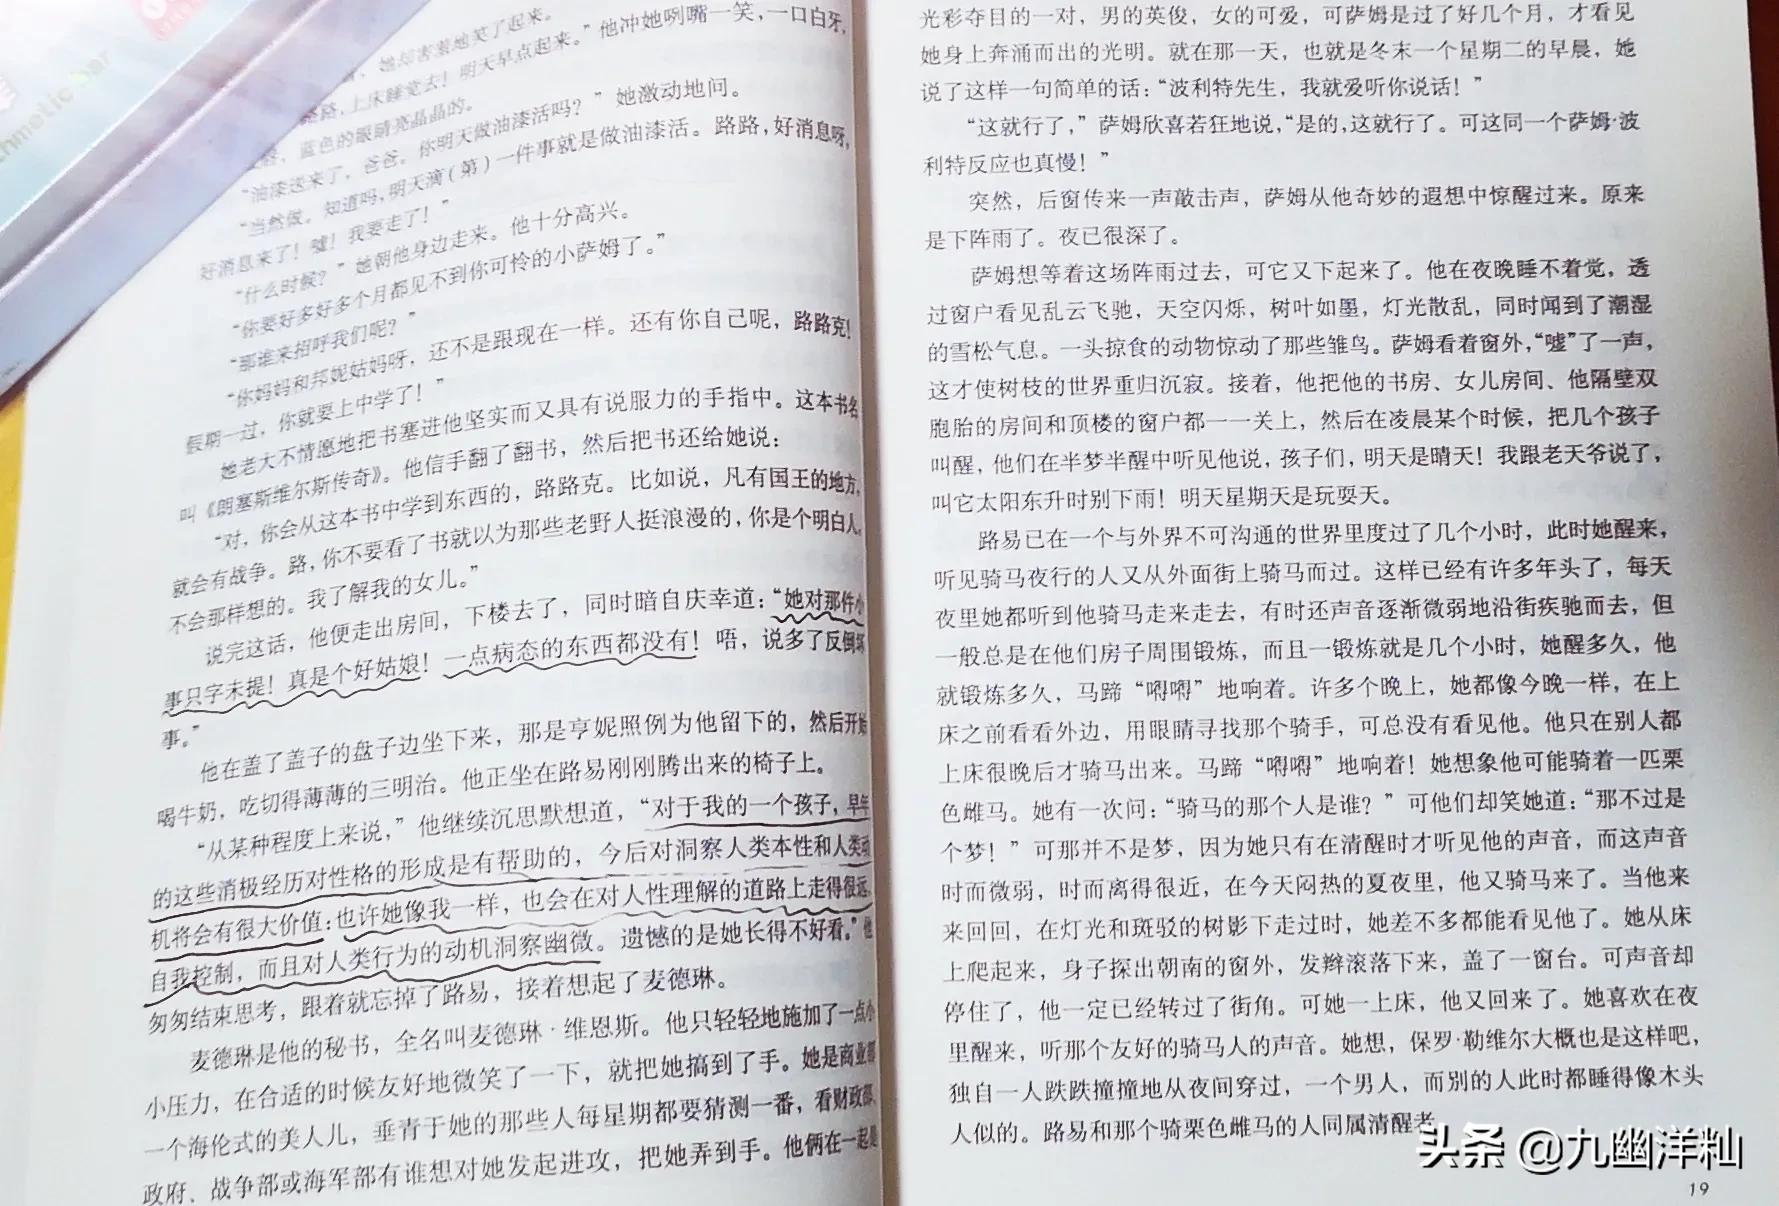 thmetic
她却害羞地笑了起来。
路路，上床睡觉去！明天早点起来。”他冲她咧嘴一笑，一口白牙，
蓝色的眼睛亮晶晶的。
“油漆送来了，爸爸。你明天做油漆活吗？”她激动地问。
“当然做。知道吗，明天滴（第）一件事就是做油漆活。路路，好消息呀，
好消息来了！嘘！我要走了！”
“什么时候？”她朝他身边走来。他十分高兴。
“你要好多好多个月都见不到你可怜的小萨姆了。”
“那谁来招呼我们呢？”
“你妈妈和邦妮姑妈呀，还不是跟现在一样。还有你自己呢，路路克！
假期一过，你就要上中学了！”
她老大不情愿地把书塞进他坚实而又具有说服力的手指中。这本书名
叫《朗塞斯维尔斯传奇》。他信手翻了翻书，然后把书还给她说：
“对，你会从这本书中学到东西的，路路克。比如说，凡有国王的地方，
就会有战争。路，你不要看了书就以为那些老野人挺浪漫的，你是个明白人，
不会那样想的。我了解我的女儿。”
说完这话，他便走出房间，下楼去了，同时暗自庆幸道：“她对那件小
事只字未提！真是个好姑娘！一点病态的东西都没有！唔，说多了反倒坏
事。”
他在盖了盖子的盘子边坐下来，那是亨妮照例为他留下的，然后开始
喝牛奶，吃切得薄薄的三明治。他正坐在路易刚刚腾出来的椅子上。
“从某种程度上来说，”他继续沉思默想道，“对于我的一个孩子，早年
的这些消极经历对性格的形成是有帮助的，今后对洞察人类本性和人类动
机将会有很大价值：也许她像我一样，也会在对人性理解的道路上走得很远，
自我控制，而且对人类行为的动机洞察幽微。遗憾的是她长得不好看。”他
匆匆结束思考，跟着就忘掉了路易，接着想起了麦德琳。
麦德琳是他的秘书，全名叫麦德琳·维恩斯。他只轻轻地施加了一点小
小压力，在合适的时候友好地微笑了一下，就把她搞到了手。她是商业部
一个海伦式的美人儿，垂青于她的那些人每星期都要猜测一番，看财政部、
政府、战争部或海军部有谁想对她发起进攻，把她弄到手。他俩在一起是
光彩夺目的一对，男的英俊，女的可爱，可萨姆是过了好几个月，才看见
她身上奔涌而出的光明。就在那一天，也就是冬末一个星期二的早晨，她
说了这样一句简单的话：“波利特先生，我就爱听你说话！”
“这就行了，”萨姆欣喜若狂地说，“是的，这就行了。可这同一个萨姆·波
利特反应也真慢！”
突然，后窗传来一声敲击声，萨姆从他奇妙的遐想中惊醒过来。原来
是下阵雨了。夜已很深了。
萨姆想等着这场阵雨过去，可它又下起来了。他在夜晚睡不着觉，透
过窗户看见乱云飞驰，天空闪烁，树叶如墨，灯光散乱，同时闻到了潮湿
的雪松气息。一头掠食的动物惊动了那些雏鸟。萨姆看着窗外，“嘘”了一声，
这才使树枝的世界重归沉寂。接着，他把他的书房、女儿房间、他隔壁双
胞胎的房间和顶楼的窗户都一一关上，然后在凌晨某个时候，把几个孩子
叫醒，他们在半梦半醒中听见他说，孩子们，明天是晴天！我跟老天爷说了，
叫它太阳东升时别下雨！明天星期天是玩耍天。
路易已在一个与外界不可沟通的世界里度过了几个小时，此时她醒来，
听见骑马夜行的人又从外面街上骑马而过。这样已经有许多年头了，每天
夜里她都听到他骑马走来走去，有时还声音逐渐微弱地沿街疾驰而去，但
一般总是在他们房子周围锻炼，而且一锻炼就是几个小时，她醒多久，他
就锻炼多久，马蹄“嘚嘚”地响着。许多个晚上，她都像今晚一样，在上
床之前看看外边，用眼睛寻找那个骑手，可总没有看见他。他只在别人都
上床很晚后才骑马出来。马蹄“嘚嘚”地响着！她想象他可能骑着一匹栗
色雌马。她有一次问：“骑马的那个人是谁？”可他们却笑她道：“那不过是
个梦！”可那并不是梦，因为她只有在清醒时才听见他的声音，而这声音
时而微弱，时而离得很近，在今天闷热的夏夜里，他又骑马来了。当他来
来回回，在灯光和斑驳的树影下走过时，她差不多都能看见他了。她从床
上爬起来，身子探出朝南的窗外，发辫滚落下来，盖了一窗台。可声音却
停住了，他一定已经转过了街角。可她一上床，他又回来了。她喜欢在夜
里醒来，听那个友好的骑马人的声音。她想，保罗·勒维尔大概也是这样吧，
独自一人跌跌撞撞地从夜间穿过，一个男人，而别的人此时都睡得像木头
人似的。路易和那个骑栗色雌马的人同属清醒者
头条 @九幽洋籼
19